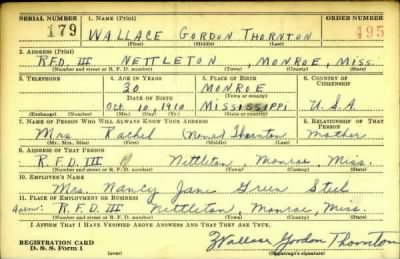 SERIAL NUMBER 1. NAME (Print) ORDER NUMBER
179 WALLACE GORDON THORNTON 495
(First) (Middle) (Last)
2. ADDRESS (Print)
RFD III NETTLETON, MONROE, MISS.
(Number and street or R. F. D. number) (Town) (County) (State)
3. TELEPHONE 4. AGE IN YEARS 5. PLACE OF BIRTH 6. COUNTRY OF CITIZENSHIP
30 MONROE
DATE OF BIRTH (Town or county)
Oct. 10, 1910 MISSISSIPPI U.S.A
(Exchange) (Number) (Mo.) (Day) (Yr.) (State or country)
7. NAME OF PERSON WHO WILL ALWAYS KNOW YOUR ADDRESS 8. RELATIONSHIP OF THAT PERSON
Mrs. Rachel (None) Thornton Mother
(Mr., Mrs., Miss) (First) (Middle) (Last)
9. ADDRESS OF THAT PERSON
R.F.D. III Nettleton, Monroe, Miss.
(Number and street or R. F. D. number) (Town) (County) (State)
10. EMPLOYER'S NAME
Mrs. Nancy Jane Green
11. PLACE OF EMPLOYMENT OR BUSINESS
R.F.D. III Nettleton, Monroe, Miss.
(Number and street or R. F. D. number) (Town) (County) (State)
I AFFIRM THAT I HAVE VERIFIED ABOVE ANSWERS AND THAT THEY ARE TRUE.
REGISTRATION CARD
D. S. S. Form 1 (over) Wallace Gordon Thornton
(Registrant's signature)